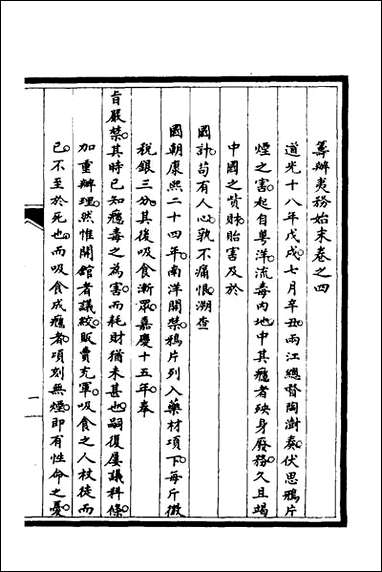 籌辦夷務始末卷之四
道光十八年戊戌七月辛丑兩江總督陶澍奏伏思鴉片
煙之害起自粵洋流毒內地中其癮者殃身廢務久且竭
中國之貲財貽害及於
國計苟有人心孰不痛恨溯查
國朝康熙二十四年南洋開禁鴉片列入藥材項下每斤徵
稅銀三分其後吸食漸眾嘉慶十五年奉
旨嚴禁其時已知癮毒之為害而耗財猶未甚也嗣復屢議科條
加重辦理然惟開館者議絞販賣充軍吸食之人杖徒而
已不至於死也而吸食成癮者頃刻無煙即有性命之憂
一